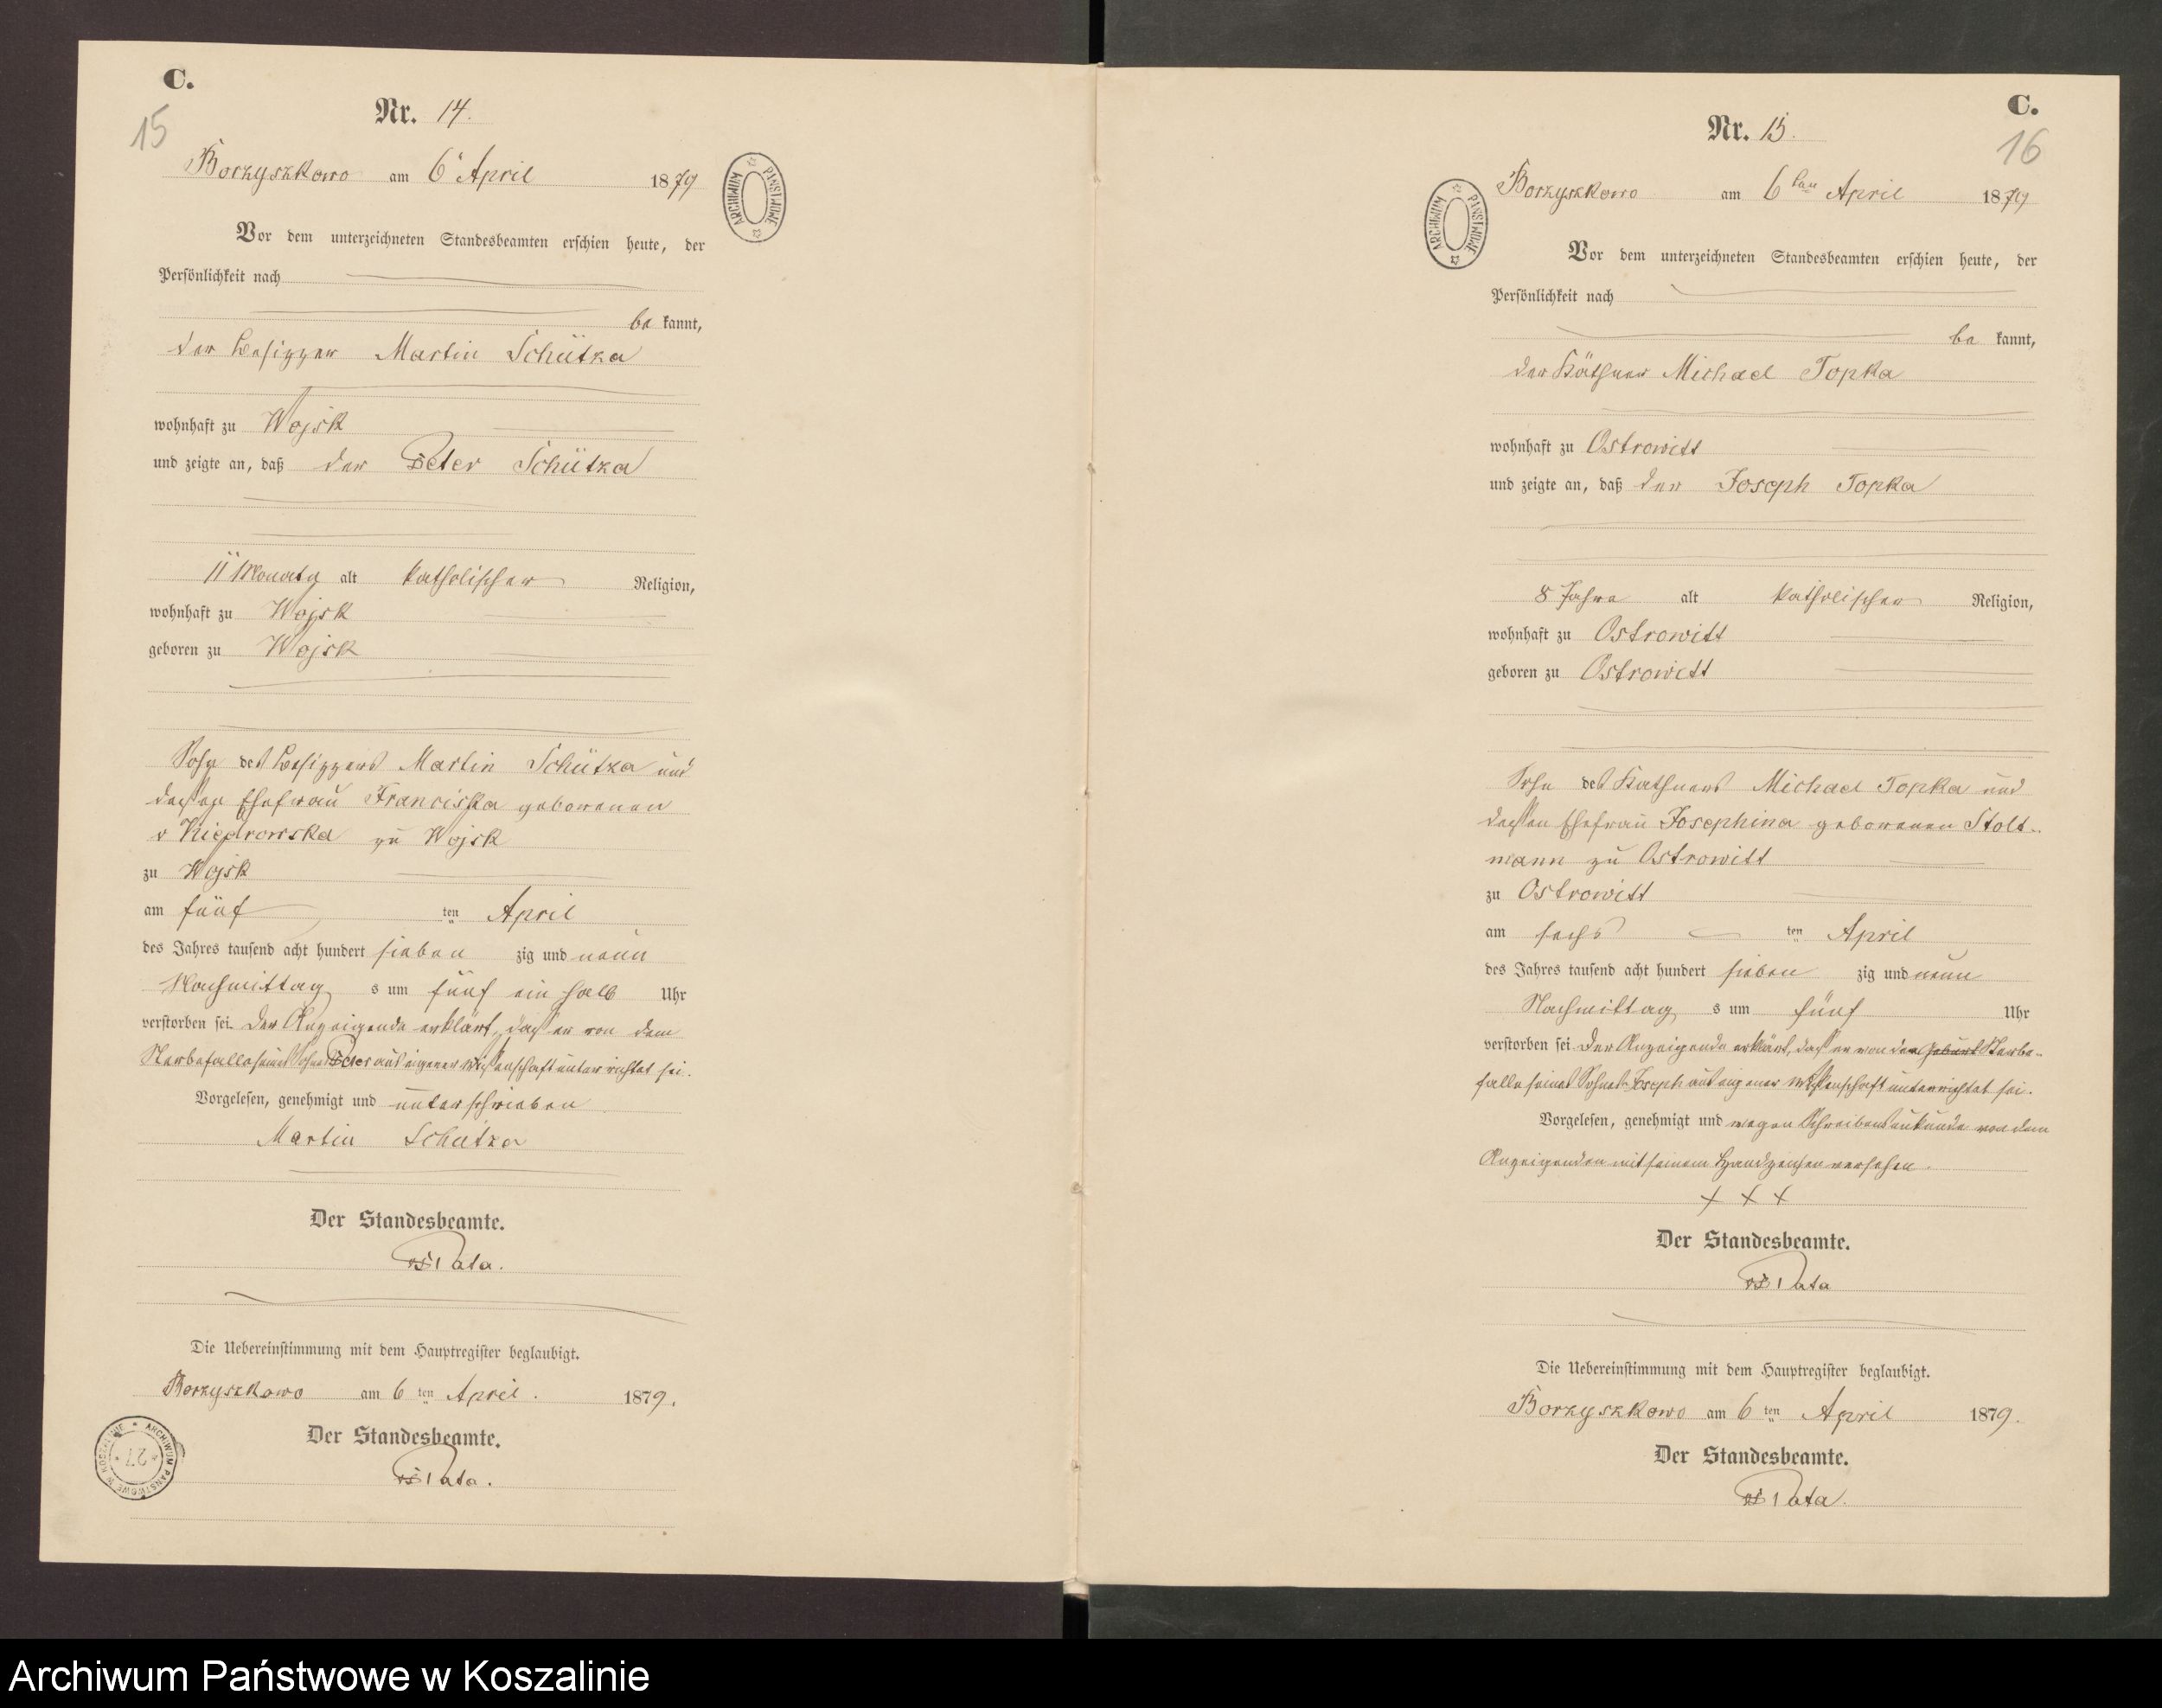 C.
15
Nr. 14.
Borzyszkowo am 6. April 1879
Vor dem unterzeichneten Standesbeamten erschien heute, der
Persönlichkeit nach
be kannt,
der Besitzer Martin Schützka
wohnhaft zu Wojsk
und zeigte an, daß der Peter Schützka
11 Monate alt katholischer Religion,
wohnhaft zu Wojsk
geboren zu Wojsk
Sohn des Besitzers Martin Schützka und
dessen Ehefrau Franciska geborenen
v Kiedrowska zu Wojsk
zu Wojsk
am fünf ten April
des Jahres tausend acht hundert sieben zig und neun
Nachmittag s um fünf ein halb Uhr
verstorben sei. Der Anzeigende erklärt, daß er von dem
Sterbefalle seines Sohnes Peter aus eigener Wissenschaft unterrichtet sei.
Vorgelesen, genehmigt und unterschrieben
Martin Schützka
Der Standesbeamte.
Pata.
Die Uebereinstimmung mit dem Hauptregister beglaubigt.
Borzyszkowo am 6 ten April. 1879.
Der Standesbeamte.
Pata.
ARCHIWUM PAŃSTWOWE
ARCHIWUM PAŃSTWOWE W KOSZALINIE
* 27 *
C.
16
Nr. 15.
Borzyszkowo am 6 ten April 1879
Vor dem unterzeichneten Standesbeamten erschien heute, der
Persönlichkeit nach
be kannt,
der Käthner Michael Topka
wohnhaft zu Ostrowitt
und zeigte an, daß der Joseph Topka
8 Jahre alt katholischer Religion,
wohnhaft zu Ostrowitt
geboren zu Ostrowitt
Sohn des Kathners Michael Topka und
dessen Ehefrau Josephina geborenen Stolt-
mann zu Ostrowitt
zu Ostrowitt
am sechs ten April
des Jahres tausend acht hundert sieben zig und neun
Nachmittag s um fünf Uhr
verstorben sei. Der Anzeigende erklärt, daß er von der Geburt Sterbe-
falle seines Sohnes Joseph aus eigener Wissenschaft unterrichtet sei.
Vorgelesen, genehmigt und wegen Schreibensunkunde von dem
Anzeigenden mit seinem Handzeichen versehen.
+ + +
Der Standesbeamte.
Pata
Die Uebereinstimmung mit dem Hauptregister beglaubigt.
Borzyszkowo am 6 ten April 1879.
Der Standesbeamte.
Pata.
ARCHIWUM PAŃSTWOWE
Archiwum Państwowe w Koszalinie